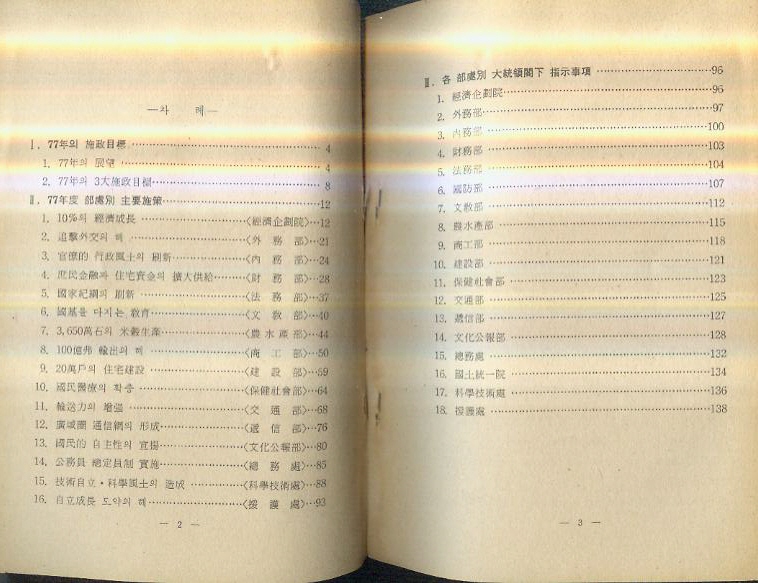 ―차 례―
Ⅰ. 77年의 施政目標 ………… 4
1. 77年의 展望 ………… 4
2. 77年의 3大施政目標 ………… 8
Ⅱ. 77年度 部處別 主要施策 ………… 12
1. 10%의 經濟成長 ………… 〈經濟企劃院〉…12
2. 追擊外交의 해 ………… 〈外務部〉…21
3. 官僚的 行政風土의 刷新 ………… 〈內務部〉…24
4. 庶民金融과 住宅資金의 擴大供給 ………… 〈財務部〉…28
5. 國家紀綱의 刷新 ………… 〈法務部〉…37
6. 國基를 다지는 敎育 ………… 〈文敎部〉…40
7. 3,650萬石의 米穀生産 ………… 〈農水產部〉…44
8. 100億弗 輸出의 해 ………… 〈商工部〉…50
9. 20萬戶의 住宅建設 ………… 〈建設部〉…59
10. 國民醫療의 확충 ………… 〈保健社會部〉…64
11. 輸送力의 增强 ………… 〈交通部〉…68
12. 廣域圈 通信網의 形成 ………… 〈遞信部〉…76
13. 國民的 自主性의 宣揚 ………… 〈文化公報部〉…80
14. 公務員 總定員制 實施 ………… 〈總務處〉…85
15. 技術自立・科學風土의 造成 ………… 〈科學技術處〉…88
16. 自立成長 도약의 해 ………… 〈援護處〉…93
― 2 ―
Ⅲ. 各 部處別 大統領閣下 指示事項 ………… 96
1. 經濟企劃院 ………… 96
2. 外務部 ………… 97
3. 內務部 ………… 100
4. 財務部 ………… 103
5. 法務部 ………… 104
6. 國防部 ………… 107
7. 文敎部 ………… 112
8. 農水產部 ………… 115
9. 商工部 ………… 118
10. 建設部 ………… 121
11. 保健社會部 ………… 123
12. 交通部 ………… 125
13. 遞信部 ………… 127
14. 文化公報部 ………… 128
15. 總務處 ………… 132
16. 國土統一院 ………… 134
17. 科學技術處 ………… 136
18. 援護處 ………… 138
― 3 ―